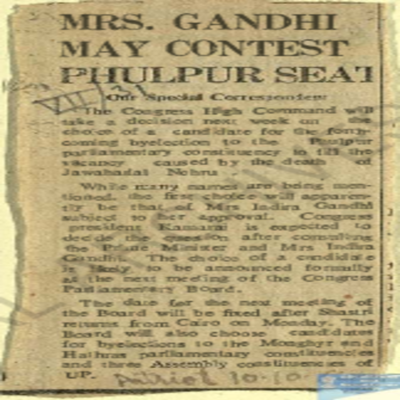 MRS. GANDHI
MAY CONTEST
PHULPUR SEAT
Our Special Correspondent
The Congress High Command will
take a decision next week on the
choice of a candidate for the forth-
coming byelection to the Phulpur
parliamentary constituency to fill the
vacancy caused by the death of
Jawaharlal Nehru
While many names are being men-
tioned, the first choice will apparen-
tly be that of Mrs Indira Gandhi
subject to her approval. Congress
president Kamaraj is expected to
decide the question after consulting
the Prime Minister and Mrs Indira
Gandhi. The choice of a candidate
is likely to be announced formally
at the next meeting of the Congress
Parliamentary Board.
The date for the next meeting of
the Board will be fixed after Shastri
returns from Cairo on Monday. The
Board will also choose candidates
for byelections to the Monghyr and
Hathras parliamentary constituencies
and three Assembly constituencies of
UP.
VII/31
Patriot 10-10